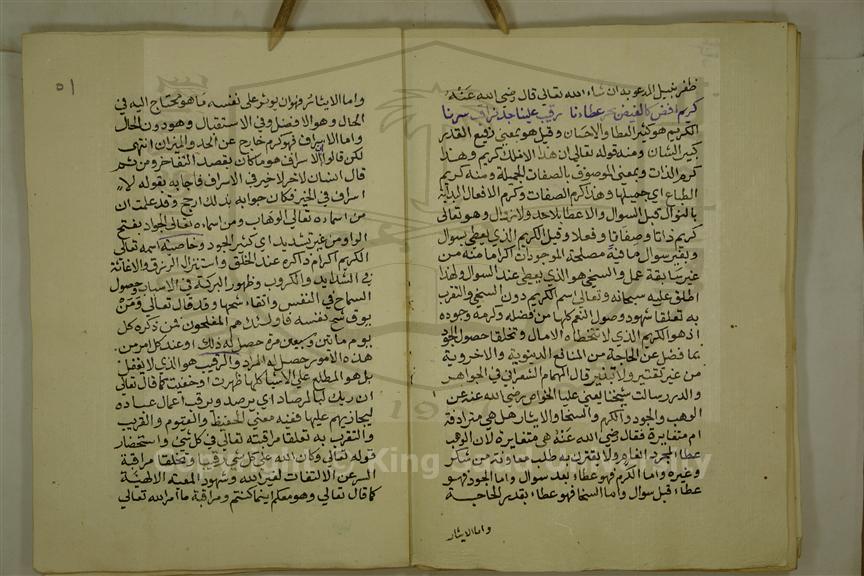 ظفر بنيل المدعو به ان شاء الله تعالى قال رضي الله عنه
كريم افض كالفيض بحر عطائنا رقيب علينا جد نراقب سرنا
الكريم هو كثير العطا والاحسان وقيل هو معنى رفيع القدر
كبير الشان ومنه قوله تعالى ان هذا الا ملك كريم وهذا
كرم الذات وبمعنى الموصوف بالصفات الجميلة ومنه كريم
الطباع اي جميلها وهذا كرم الصفات وكرم الافعال البداية
بالنوال قبل السوال والاعطا بلا حد ولا زوال وهو تعالى
كريم ذاتا وصفاتا وفعلا وقيل الكريم الذي يعطي بسوال
وبغير سوال ما فيه مصلحة الموجودات كراما منه من
غير سابقة عمل والسخي هو الذي يعطي عند السوال ولهذا
اطلق عليه سبحانه وتعالى اسم الكريم دون السخي والتقرب
به تعلقا شهود وصول النعم كلها من فضله وكرمه وجوده
اذ هو الكريم الذي لا تتخطاه الامال وتخلقا حصول الجود
بما فضل عن الحاجة من المنافع الدنيوية والاخروية
من غير تقتير ولا تبذير قال الهمام الشعراني في الجواهر
والدرر سالت شيخنا يعني عليا الخواص رضي الله عنه عن
الوهب والجود والكرم والسخا والايثار هل هي مترادفة
ام متغايرة فقال رضي الله عنه هي متغايرة لان الوهب
عطا لمجرد انعام ولا يقترن به طلب معاوضة من شكر
وغيره واما الكرم فهو عطاء بعد سوال واما الجود فهو
عطاء قبل سوال واما السخا فهو عطاء بقدر الحاجة
واما الايثار
٥١
واما الايثار فهو ان يوثر على نفسه ما هو محتاج اليه في
الحال وهو الافضل وفي الاستقبال وهو دون الحال
واما الاسراف فهو كرم خارج عن الحد والميزان انتهى
لكن قالوا الاسراف هو ما كان بقصد التفاخر ومن ثم
قال انسان لاخر لا خير في الاسراف فاجابه بقوله لا
اسراف في الخير فكان جوابه بذلك ارجح وقد علمت ان
من اسمائه تعالى الوهاب ومن اسمائه تعالى الجواد بفتح
الواو من غير تشديد اي كثير الجود وخاصية اسمه تعالى
الكريم اكرام ذاكره عند الخلق واستنزال الرزق والاغاثة
في الشدايد والكروب وظهور البركة في الاسباب وحصول
السماح في النفس واتقاء شحها وقد قال تعالى ومن
يوق شح نفسه فاولئك هم المفلحون فمن ذكره كل
يوم مائتين وسبعين مرة حصل له ذلك او عند كل امر من
هذه الامور حصل له المراد والرقيب هو الذي لا يغفل
بل هو المطلع على الاشيا كلها ظهرت او خفيت كما قال تعالى
ان ربك لبالمرصاد اي يرصد ويرقب اعمال عباده
ليجازيهم عليها ففيه معنى الحفيظ والقيوم والقريب
والتقرب به تعلقا مراقبته تعالى في كل شي واستحضار
قوله تعالى وكان الله على كل شي رقيبا وتخلقا مراقبة
السر عن الالتفات لغير الله وشهود المعية الالهية
كما قال تعالى وهو معكم اينما كنتم ومراقبة ما امر الله تعالى
Copyright © King Saud University